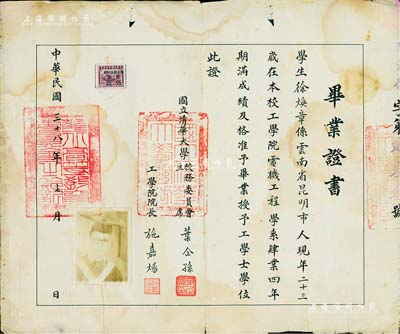 畢業證書
學生徐煥章係雲南省昆明市人現年二十三
歲在本校工學院電機工程學系肄業四年
期滿成績及格准予畢業授予工學士學位
此證
國立清華大學校務委員會主席 葉企孫
工學院院長 施嘉煬
中華民國三十八年 月 日
號